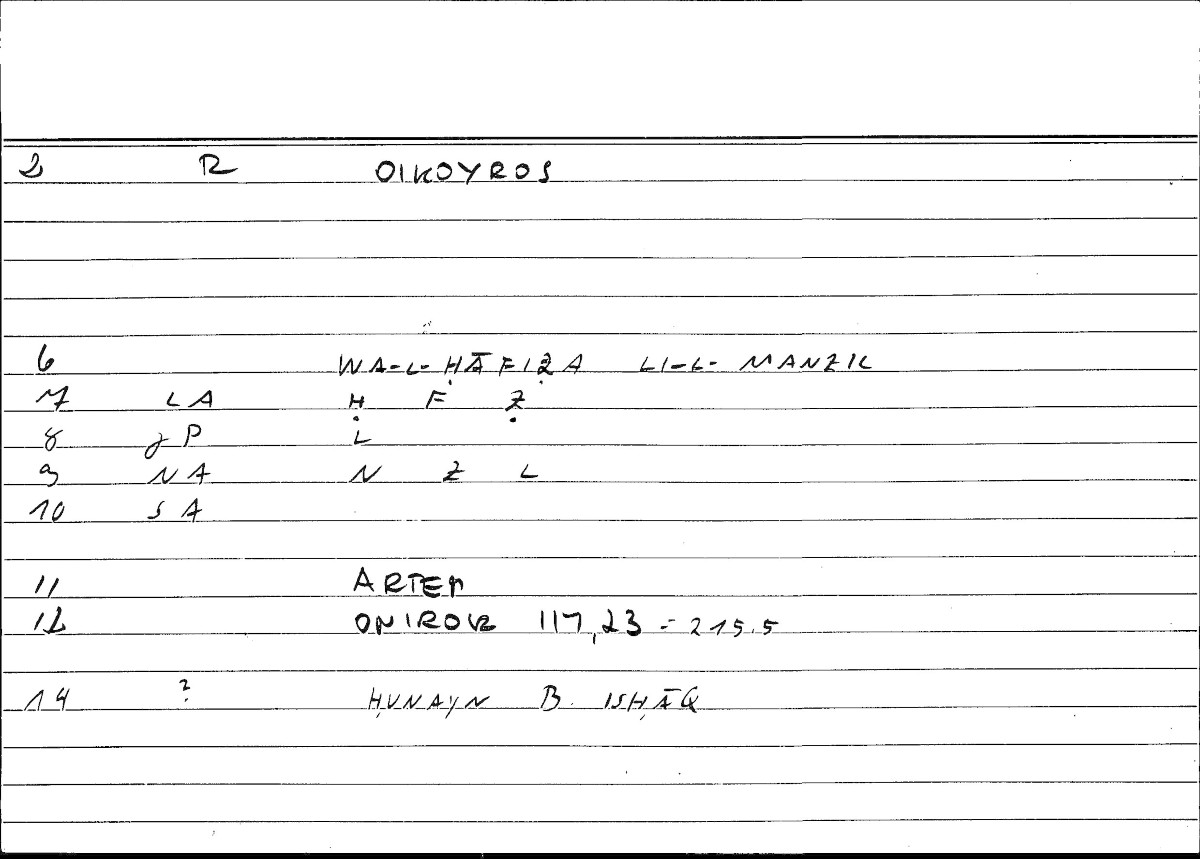 2 R OIKOYROS
6 WA-L-ḤĀFIẒA LI-L-MANZIL
7 LA Ḥ F Ẓ
8 gP L
9 NA N Z L
10 SA
11 ARTEM
12 ONIROKR 117,23 = 215.5
14 ? ḤUNAYN B. ISḤĀQ